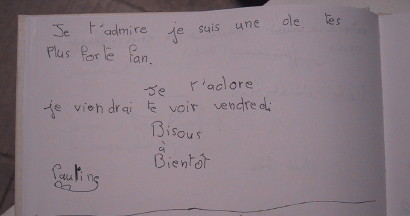 Je t'admire je suis une de tes
Plus forte fan.
Je t'adore
je viendrai te voir vendredi
Bisous
à
Bientôt
Pauline